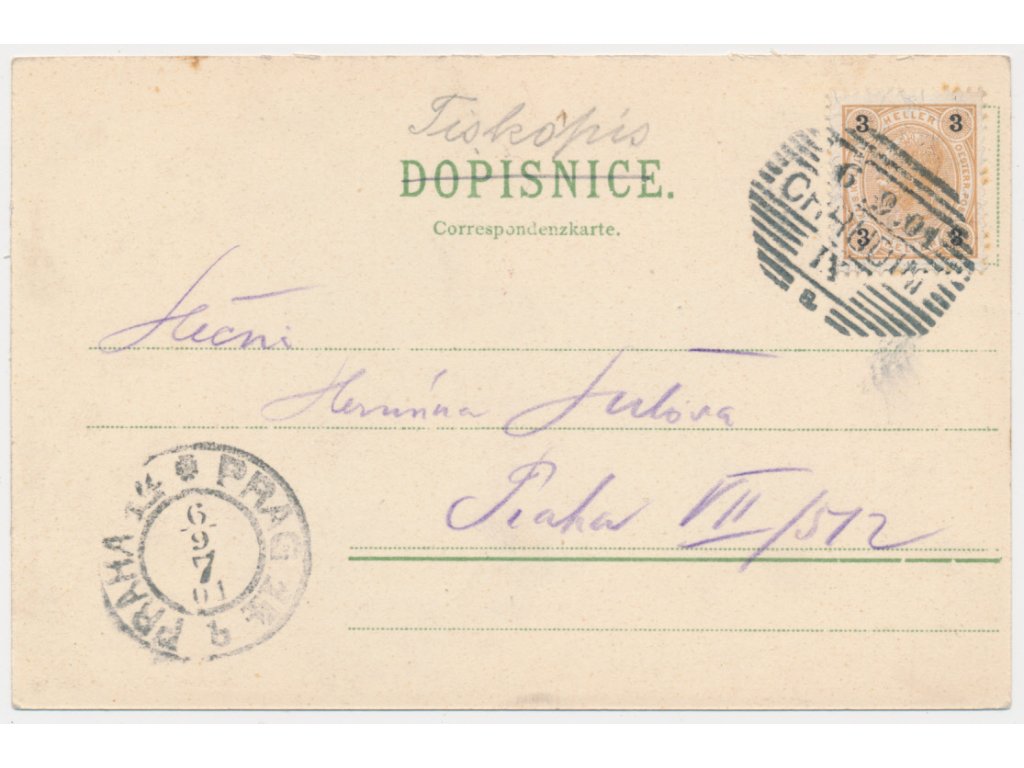 Tiskopis
DOPISNICE.
Correspondenzkarte.
3 HELLER 3
OESTERR. POST
3 3
6 9 01
IV
Slečni
Praha VII/512
PRAG
PRAHA
6
9
7
01